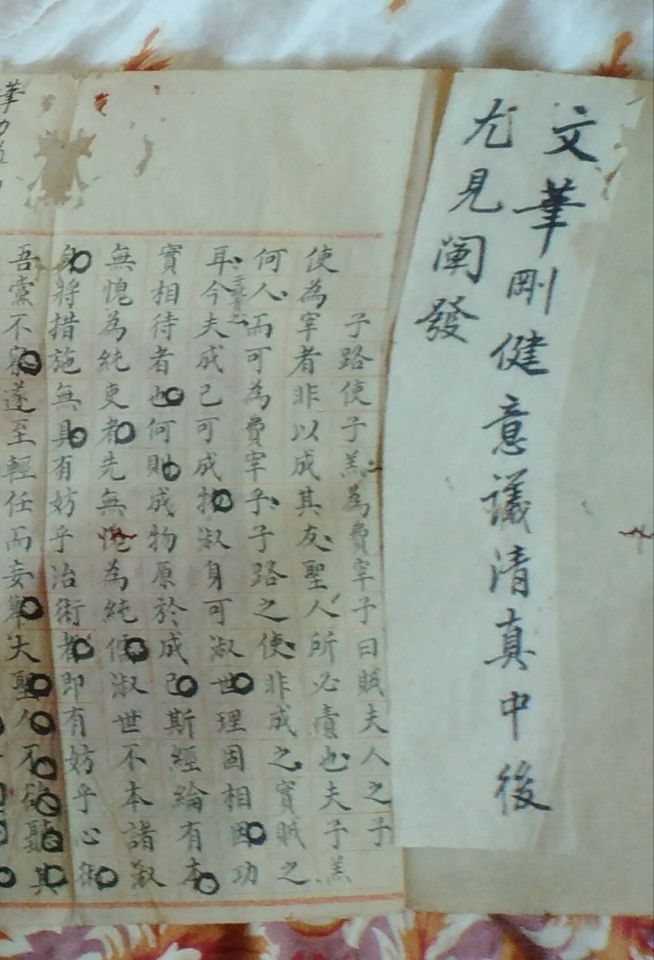 文筆剛健意議清真中後
尤見闡發
子路使子羔為費宰子曰賊夫人之子
使為宰者非以成其友聖人所必責也夫子羔
何人而可為費宰乎子路之使非成之實賊之
耳今夫成己可成物淑身可淑世理固相因功
實相待者也何則成物原於成己斯經綸有本
無愧為純吏者先無愧為純儒淑世不本諸淑
身將措施無具有妨乎治術者即有妨乎心術
吾黨不察遂至輕任而妄舉大聖人不欲其
筆力